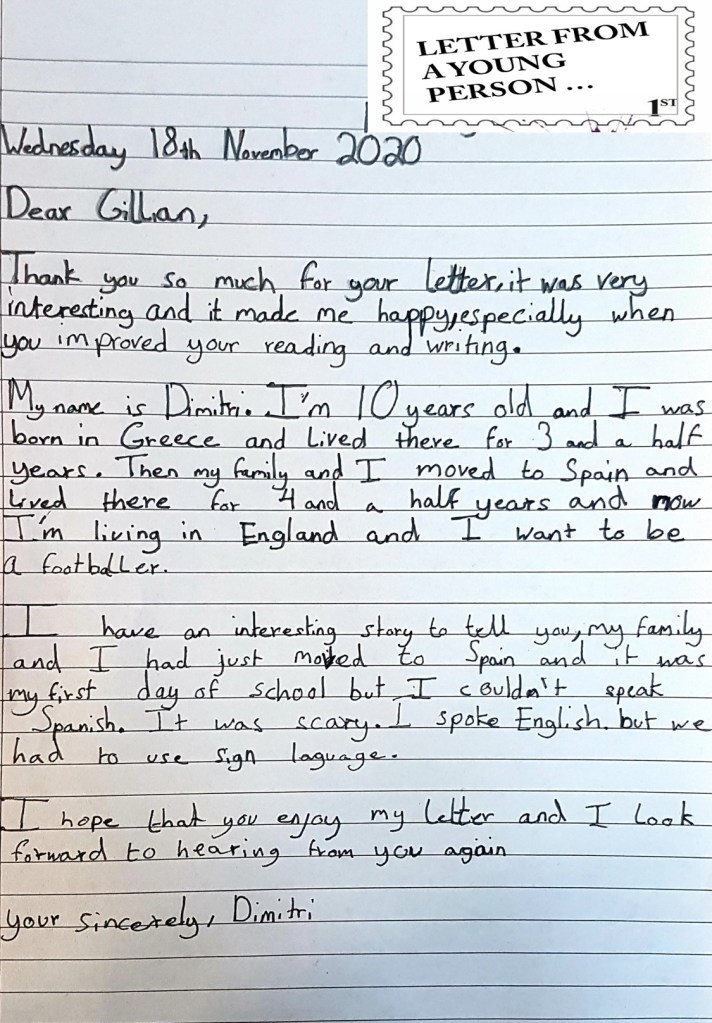 LETTER FROM
A YOUNG
PERSON ...
1ST
Wednesday 18th November 2020
Dear Gillian,
Thank you so much for your letter, it was very
interesting and it made me happy, especially when
you improved your reading and writing.
My name is Dimitri. I'm 10 years old and I was
born in Greece and Lived there for 3 and a half
years. Then my family and I moved to Spain and
Lived there for 4 and a half years and now
I'm living in England and I want to be
a footballer.
I have an interesting story to tell you, my family
and I had just moved to Spain and it was
my first day of school but I couldn't speak
Spanish. It was scary. I spoke English. but we
had to use sign laguage.
I hope that you enjoy my letter and I Look
forward to hearing from you again
your sincerely, Dimitri